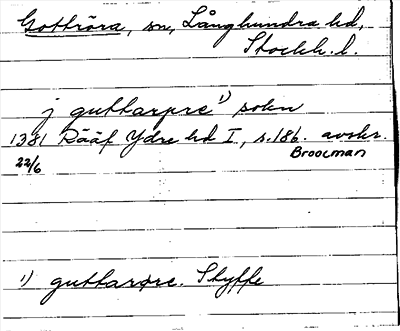 Gottröra, sn, Långhundra hd,
Stockh. l.
j guttarpre¹⁾ sokn
1381 Rääf Ydre hd I, s. 186. avskr.
22/6 Broocman
¹⁾ guttarøre. Styffe